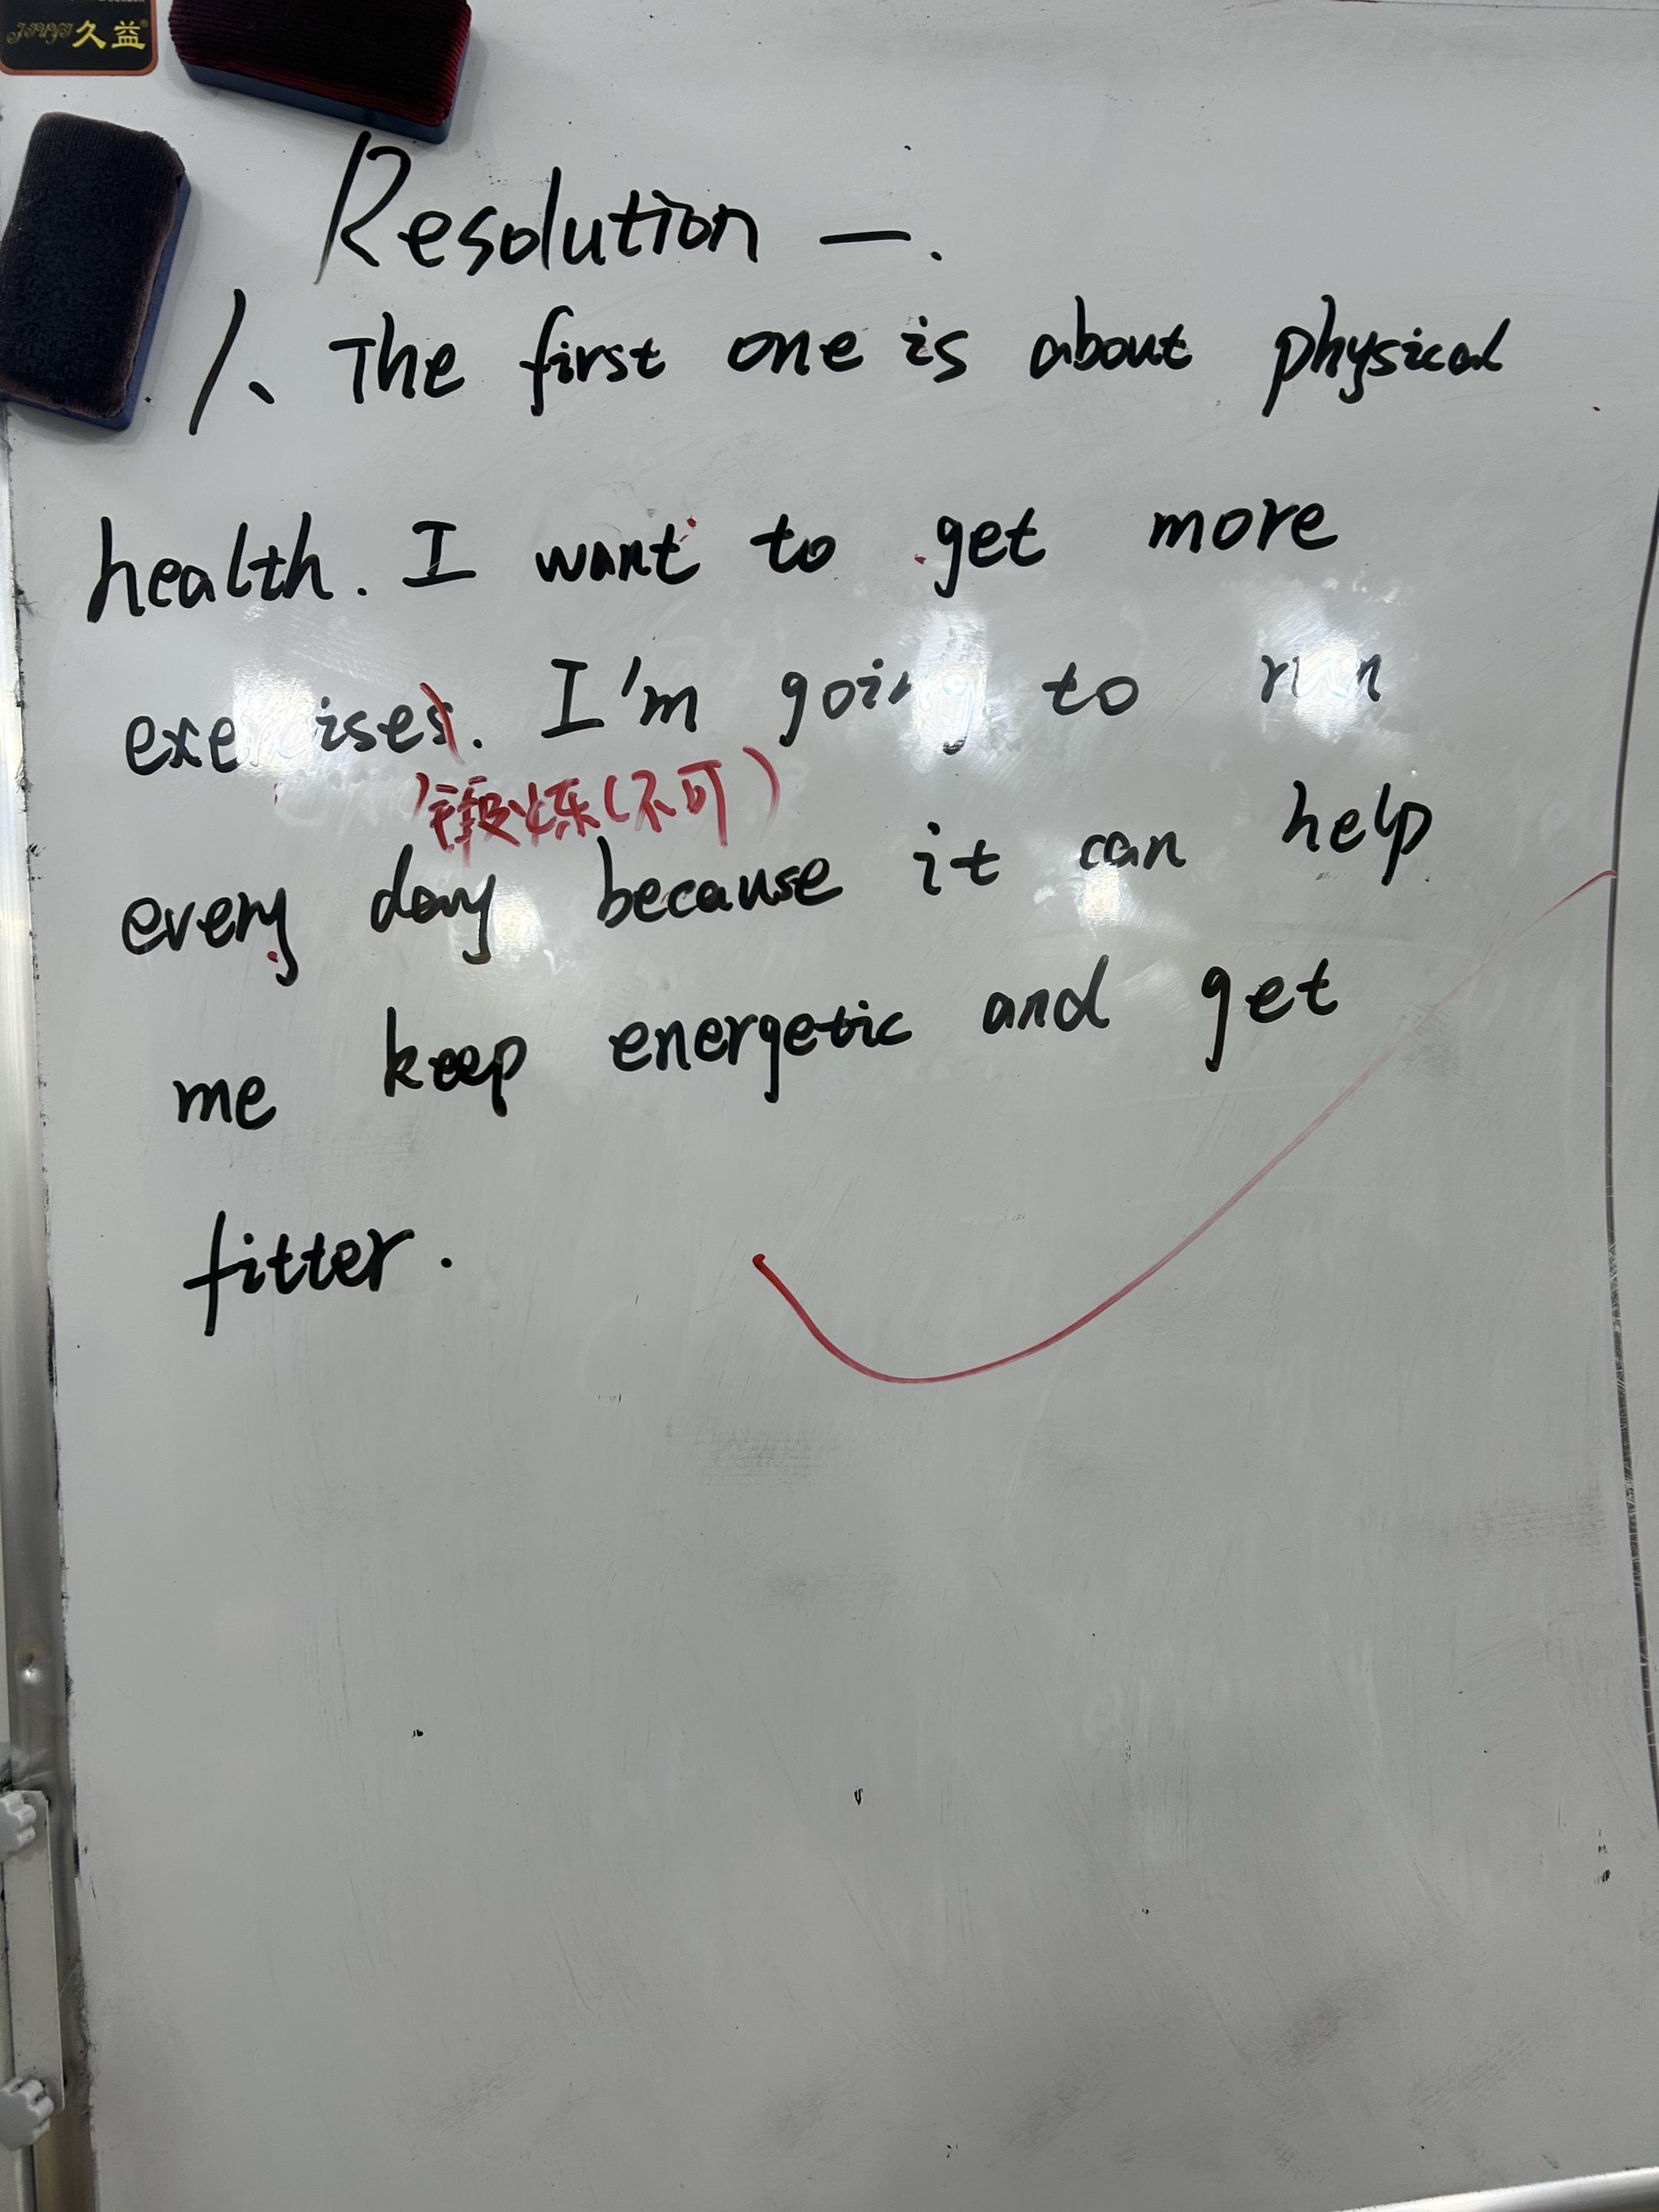 久益
Resolution 一.
1、The first one is about physical
health. I want to get more
exercises. I'm going to run
锻炼(不可)
every day because it can help
me keep energetic and get
fitter.